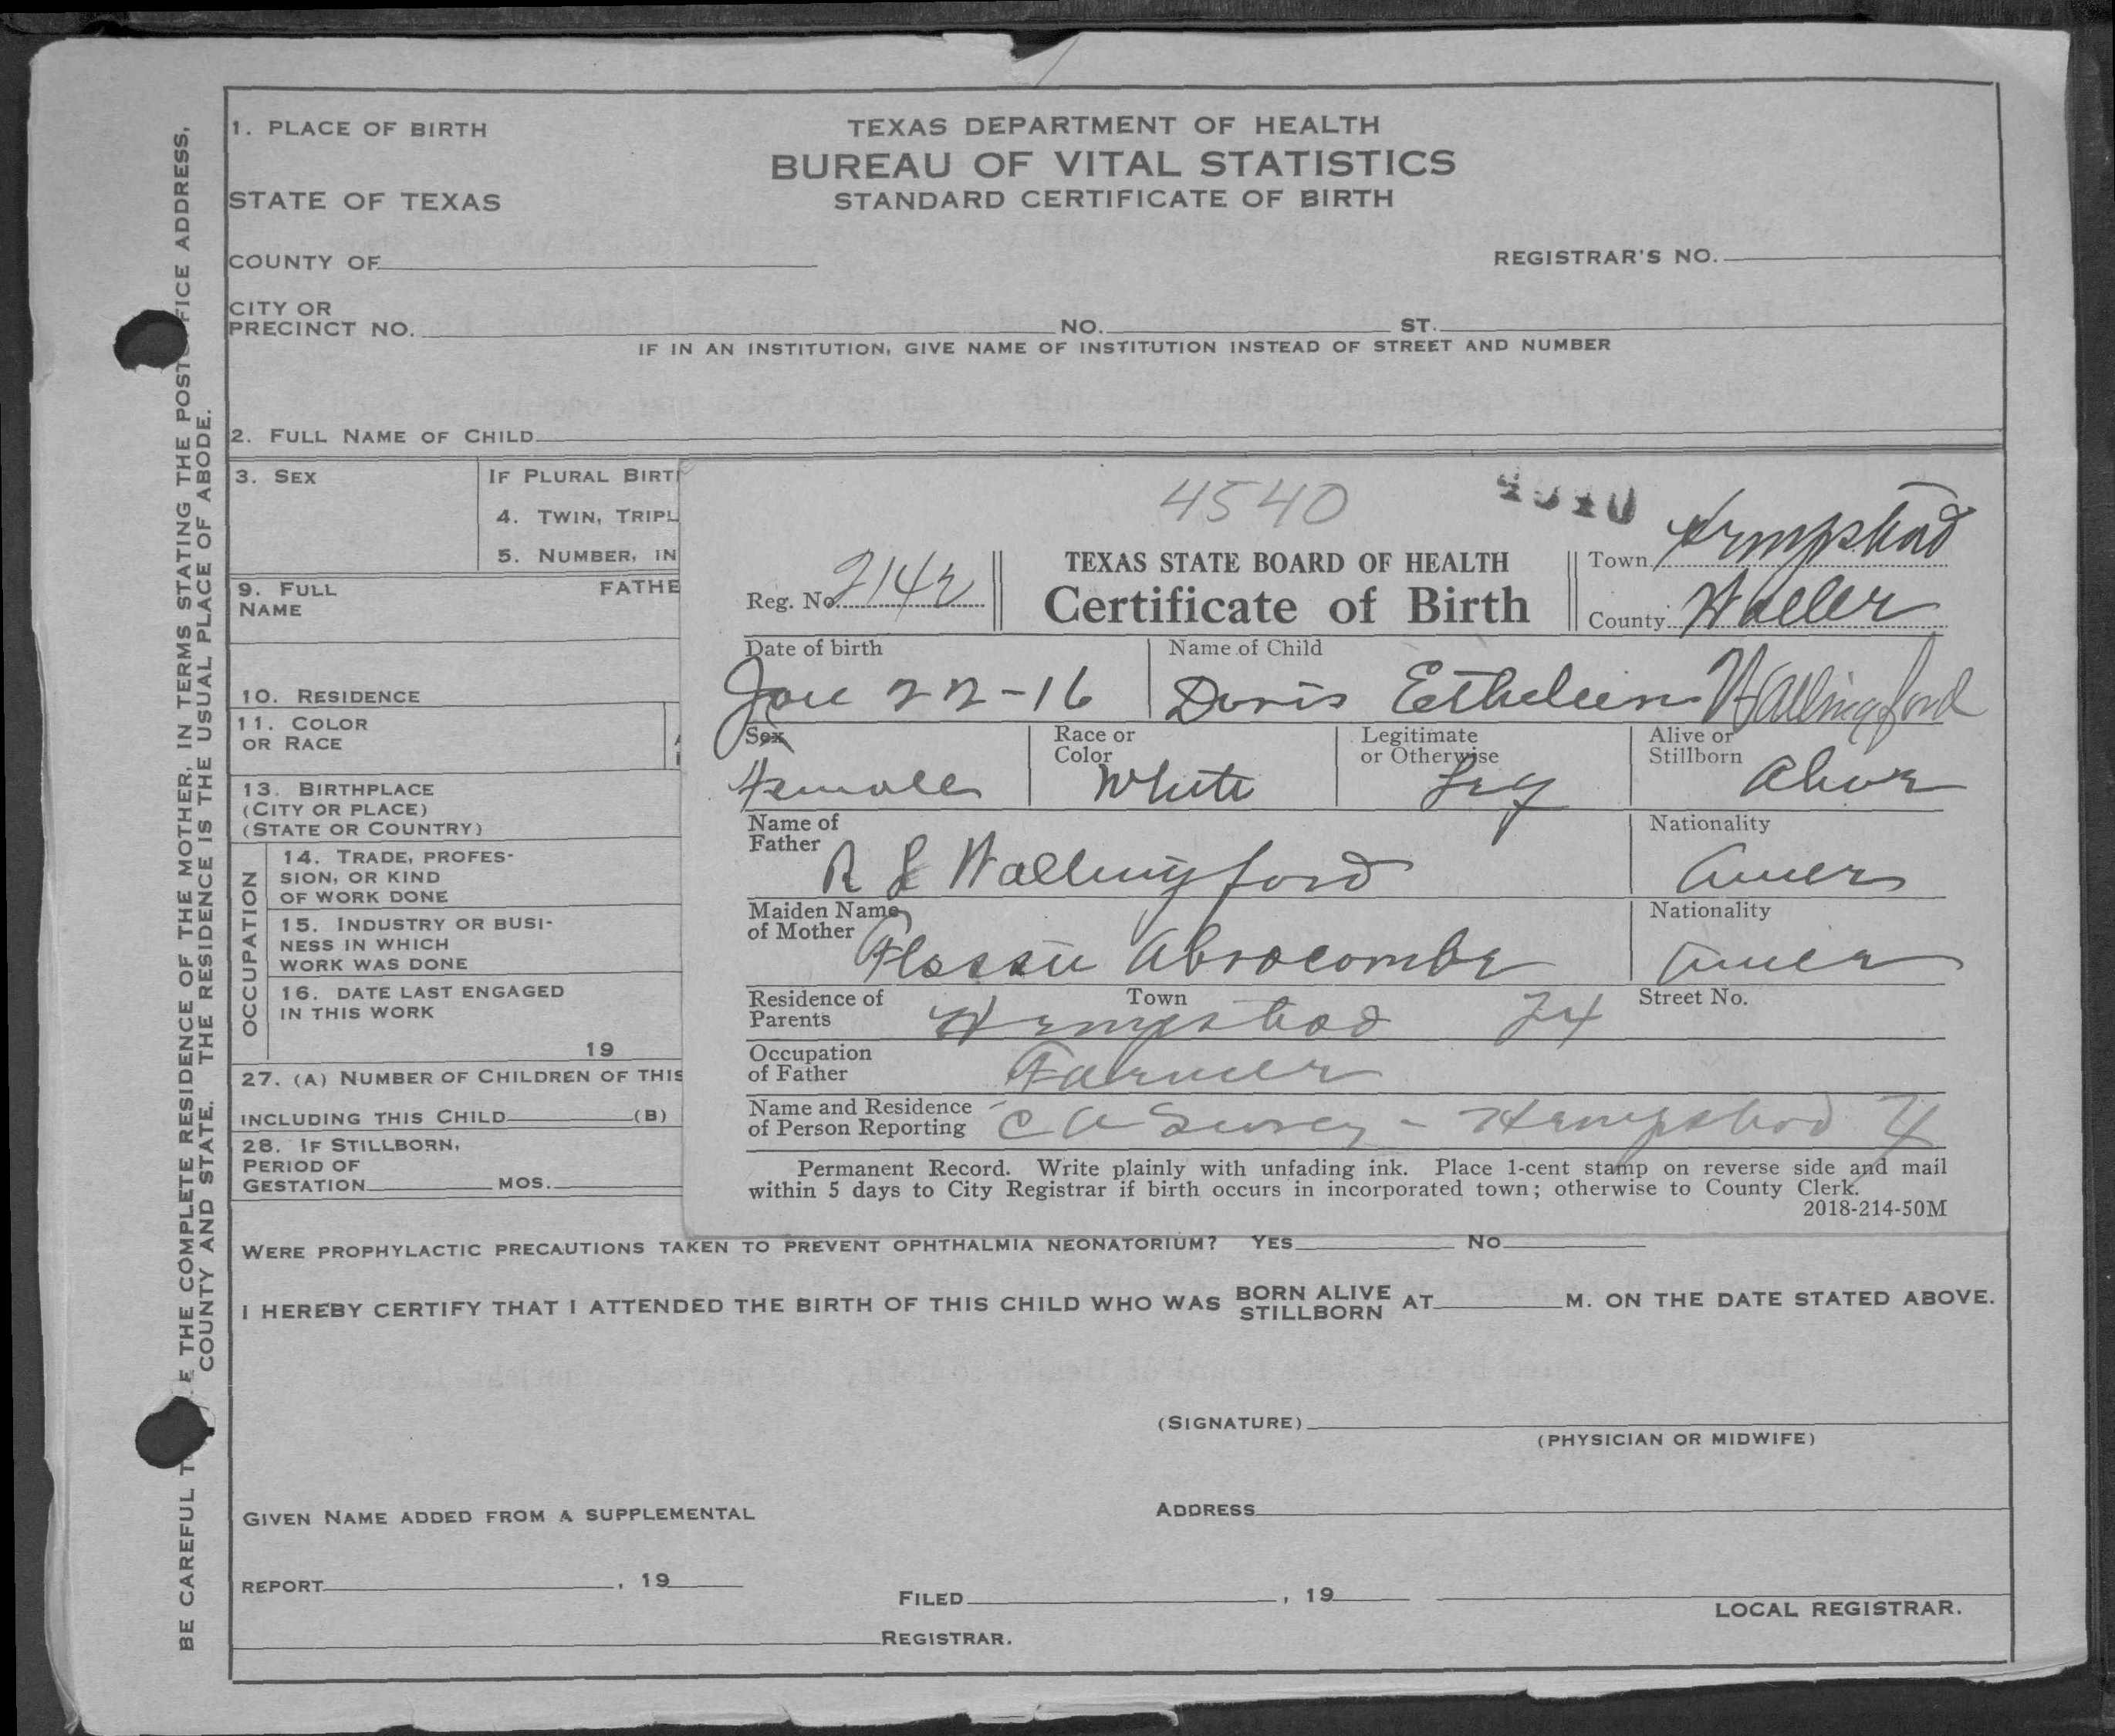 1. PLACE OF BIRTH
TEXAS DEPARTMENT OF HEALTH
BUREAU OF VITAL STATISTICS
STANDARD CERTIFICATE OF BIRTH
STATE OF TEXAS
COUNTY OF
REGISTRAR'S NO.
CITY OR
PRECINCT NO. NO. ST.
IF IN AN INSTITUTION, GIVE NAME OF INSTITUTION INSTEAD OF STREET AND NUMBER
2. FULL NAME OF CHILD
3. SEX
IF PLURAL BIRT
4. TWIN, TRIPL
5. NUMBER, IN
9. FULL
NAME
FATHE
10. RESIDENCE
11. COLOR
OR RACE
13. BIRTHPLACE
(CITY OR PLACE)
(STATE OR COUNTRY)
OCCUPATION
14. TRADE, PROFES-
SION, OR KIND
OF WORK DONE
15. INDUSTRY OR BUSI-
NESS IN WHICH
WORK WAS DONE
16. DATE LAST ENGAGED
IN THIS WORK
19
27. (A) NUMBER OF CHILDREN OF THIS
INCLUDING THIS CHILD (B)
28. IF STILLBORN,
PERIOD OF
GESTATION MOS.
4540
4540
Reg. No. 2142
TEXAS STATE BOARD OF HEALTH
Certificate of Birth
Town Hempstead
County Waller
Date of birth
Jan 22-16
Name of Child
Doris Wallingford
Sex
Female
Race or
Color
White
Legitimate
or Otherwise
Leg
Alive or
Stillborn
Alive
Name of
Father
R L Wallingford
Nationality
Amer
Maiden Name
of Mother
Flossie
Nationality
Amer
Residence of
Parents
Town
Hempstead
Street No.
Occupation
of Father
Farmer
Name and Residence
of Person Reporting
C A - Hempstead
Permanent Record. Write plainly with unfading ink. Place 1-cent stamp on reverse side and mail
within 5 days to City Registrar if birth occurs in incorporated town; otherwise to County Clerk.
2018-214-50M
WERE PROPHYLACTIC PRECAUTIONS TAKEN TO PREVENT OPHTHALMIA NEONATORIUM? YES NO
I HEREBY CERTIFY THAT I ATTENDED THE BIRTH OF THIS CHILD WHO WAS BORN ALIVE
STILLBORN AT M. ON THE DATE STATED ABOVE.
(SIGNATURE)
(PHYSICIAN OR MIDWIFE)
GIVEN NAME ADDED FROM A SUPPLEMENTAL
ADDRESS
REPORT , 19
FILED , 19
LOCAL REGISTRAR.
REGISTRAR.
BE CAREFUL T E THE COMPLETE RESIDENCE OF THE MOTHER, IN TERMS STATING THE POST FICE ADDRESS,
COUNTY AND STATE. THE RESIDENCE IS THE USUAL PLACE OF ABODE.